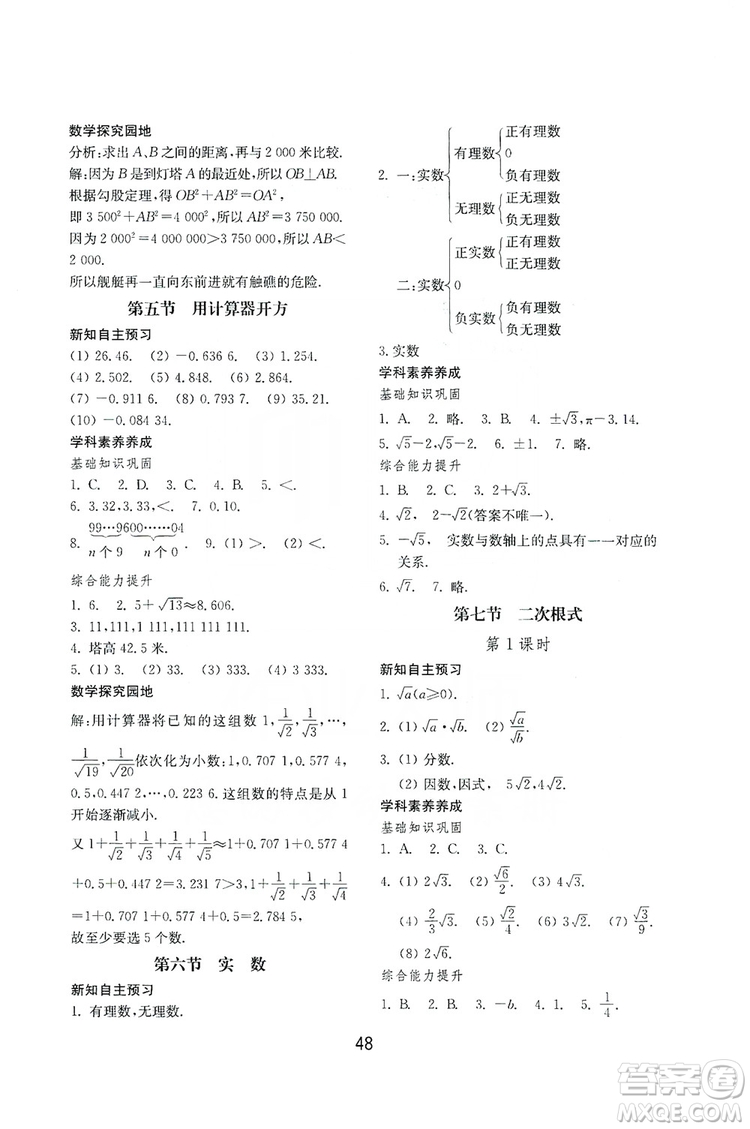 数学探究园地
分析:求出 A、B 之间的距离,再与 2 000 米比较.
解:因为 B 是到灯塔 A 的最近处,所以 OB⊥AB.
根据勾股定理,得 OB²+AB²=OA²,
即 3 500²+AB²=4 000²,所以 AB²=3 750 000.
因为 2 000²=4 000 000>3 750 000,所以 AB<
2 000.
所以舰艇再一直向东前进就有触礁的危险.
第五节 用计算器开方
新知自主预习
(1) 26.46. (2) -0.636 6. (3) 1.254.
(4) 2.502. (5) 4.848. (6) 2.864.
(7) -0.911 6. (8) -0.938 6. (9) 35.21.
(10) -0.084 34.
学科素养养成
基础知识巩固
1. C. 2. D. 3. C. 4. B. 5. <.
6. 3.32,3.33. 7. <,<,>,<.
8. 99…9600……04 n 个 9 n 个 0 . 9. (1) >. (2) <.
综合能力提升
1. 6. 2. 5+√13≈8.606.
3. 11,111,1 111,11 111.
4. 塔高 42.5 米.
5. (1) 3. (2) 33. (3) 333. (4) 3 333.
数学探究园地
解:用计算器将已知的这组数 1,1/√2,1/√3,…,
1/√19,1/√20依次化为小数:1,0.707 1,0.577 4,
0.5,0.447 2,…,0.223 6. 这组数的特点是从 1
开始逐渐减小.
又 1+1/√2+1/√3+1/√4+1/√5≈1+0.707 1+0.577 4
+0.5+0.447 2=3.231 7>3,1+1/√2+1/√3+1/√4
≈1+0.707 1+0.577 4+0.5=2.784 5,
故至少要选 5 个数.
第六节 实 数
新知自主预习
1. 有理数,无理数.
2. 一:实数{有理数{正有理数 0 负有理数 无理数{正无理数 负无理数
二:实数{正实数{正有理数 正无理数 0 负实数{负有理数 负无理数
3. 实数
学科素养养成
基础知识巩固
1. A. 2. 略. 3. 略. 4. ±√3,π-3.
5. √5-2,√5-2. 6. ±1. 7. 略.
综合能力提升
1. B. 2. C. 3. 2+√3.
4. √2, 2-√2(答案不唯一).
5. -√5, 实数与数轴上的点具有一一对应的
关系.
6. √7. 7. 略.
第七节 二次根式
第 1 课时
新知自主预习
1. √a(a≥0).
2. (1) √a·√b. (2) √a/√b.
3. (1) 分数.
(2) 因数,因式, 5√2,4√2.
学科素养养成
基础知识巩固
1. A. 2. C. 3. C.
4. (1) 2√3. (2) √6/2. (3) 2√3.
(4) 2/3√3. (5) √2/4. (6) 3√2. (7) √3/9.
(8) 2√6.
综合能力提升
1. B. 2. C. 3. -b. 4. 1. 5. 1/4.
48
答案圈
MXQE.COM